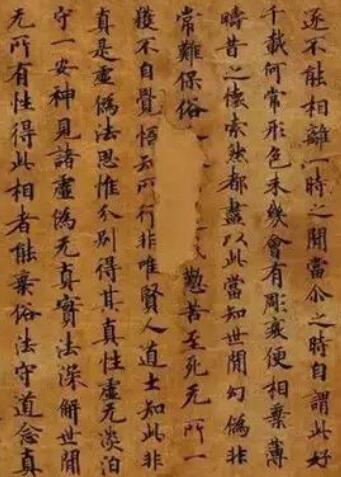 遂不能相離一時之間當尒之時自謂此好
千載何常形色未幾會有彫衰便相棄薄
疇昔之懷索然都盡以此當知世間幻偽非
常難保俗懃苦至死无所一
獲不自覺悟云所行非唯賢人道士知此非
真是虛偽法思惟分別得其真性虛无淡泊
守一安神見諸虛偽无真實法深解世間
无所有性得此相者能棄俗法守道念真